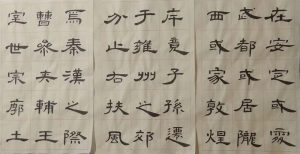 焉秦漢之際
曹參夾輔王
室世宗廓土
斥竟子孫遷
于雍州之郊
分止右扶風
在安定或處
武都或居隴
西或家敦煌